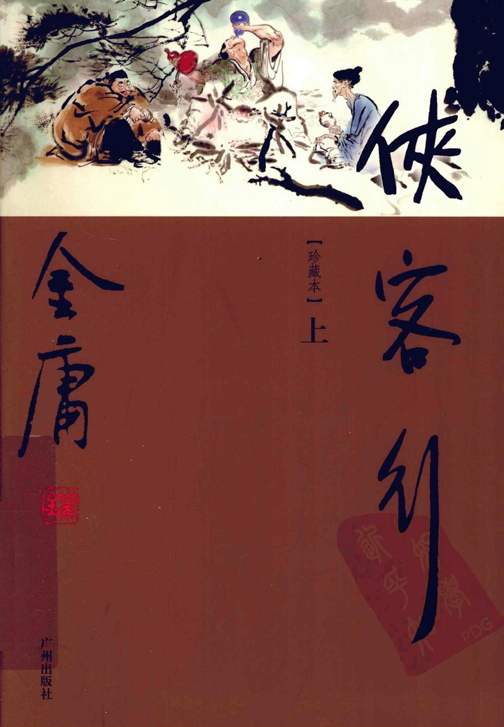 俠客行
【珍藏本】上
金庸
广州出版社
PDG